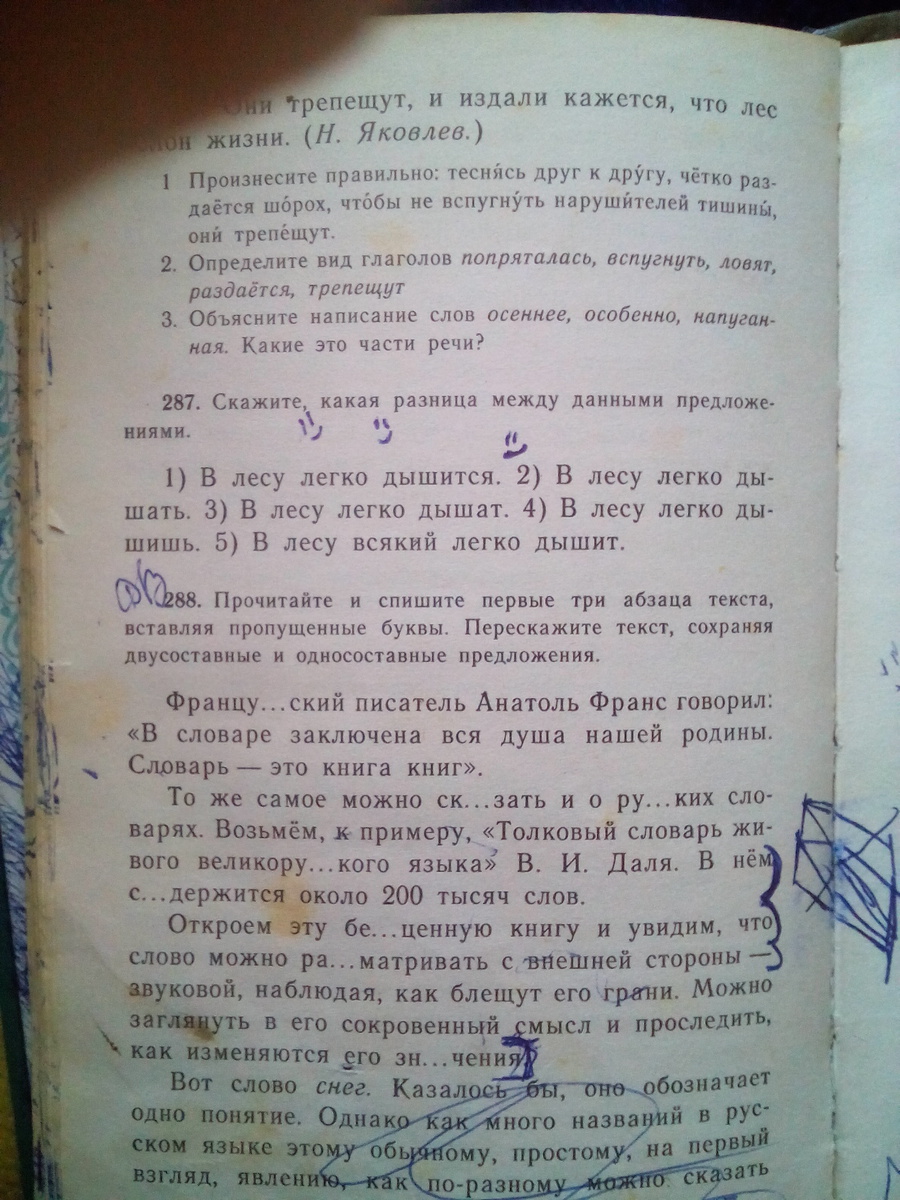 Они трепещут, и издали кажется, что лес
жизни. (Н. Яковлев.)
1 Произнесите правильно: тесня́сь друг к дру́гу, чётко раз-
даётся шо́рох, что́бы не вспугну́ть наруши́телей тишины́,
они́ трепе́щут.
2. Определите вид глаголов попряталась, вспугнуть, ловят,
раздаётся, трепещут
3. Объясните написание слов осеннее, особенно, напуган-
ная. Какие это части речи?
287. Скажите, какая разница между данными предложе-
ниями.
1) В лесу легко дышится. 2) В лесу легко ды-
шать. 3) В лесу легко дышат. 4) В лесу легко ды-
шишь. 5) В лесу всякий легко дышит.
288. Прочитайте и спишите первые три абзаца текста,
вставляя пропущенные буквы. Перескажите текст, сохраняя
двусоставные и односоставные предложения.
Францу...ский писатель Анатоль Франс говорил:
«В словаре заключена вся душа нашей родины.
Словарь — это книга книг».
То же самое можно ск...зать и о ру...ких сло-
варях. Возьмём, к примеру, «Толковый словарь жи-
вого великору...кого языка» В. И. Даля. В нём
с...держится около 200 тысяч слов.
Откроем эту бе...ценную книгу и увидим, что
слово можно ра...матривать с внешней стороны —
звуковой, наблюдая, как блещут его грани. Можно
заглянуть в его сокровенный смысл и проследить,
как изменяются его зн...чения
Вот слово снег. Казалось бы, оно обозначает
одно понятие. Однако как много названий в рус-
ском языке этому обычному, простому, на первый
взгляд, явлению, как по-разному можно сказать